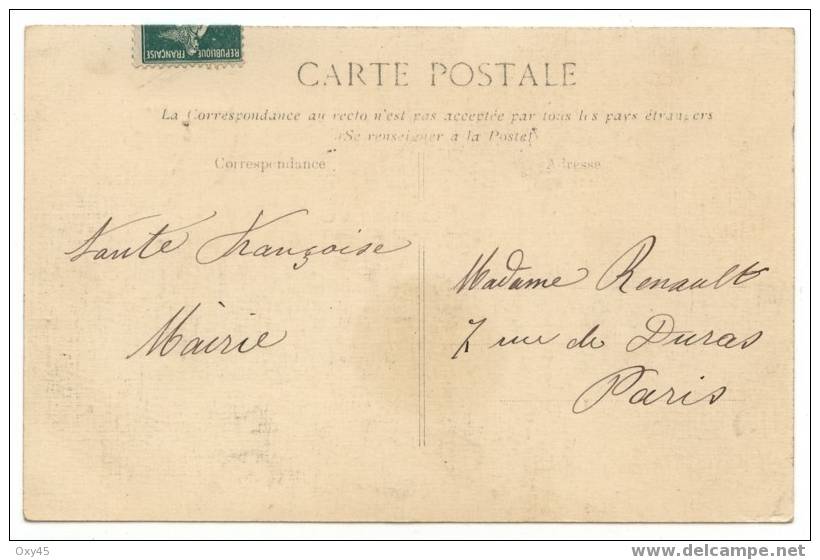 REPUBLIQUE FRANÇAISE
CARTE POSTALE
La Correspondance au recto n'est pas acceptée par tous les pays étrangers
(Se renseigner à la Poste)
Correspondance
Adresse
Tante Françoise
Mairie
Madame Renault
7 rue de Duras
Paris
Oxy45
www.delcampe.net